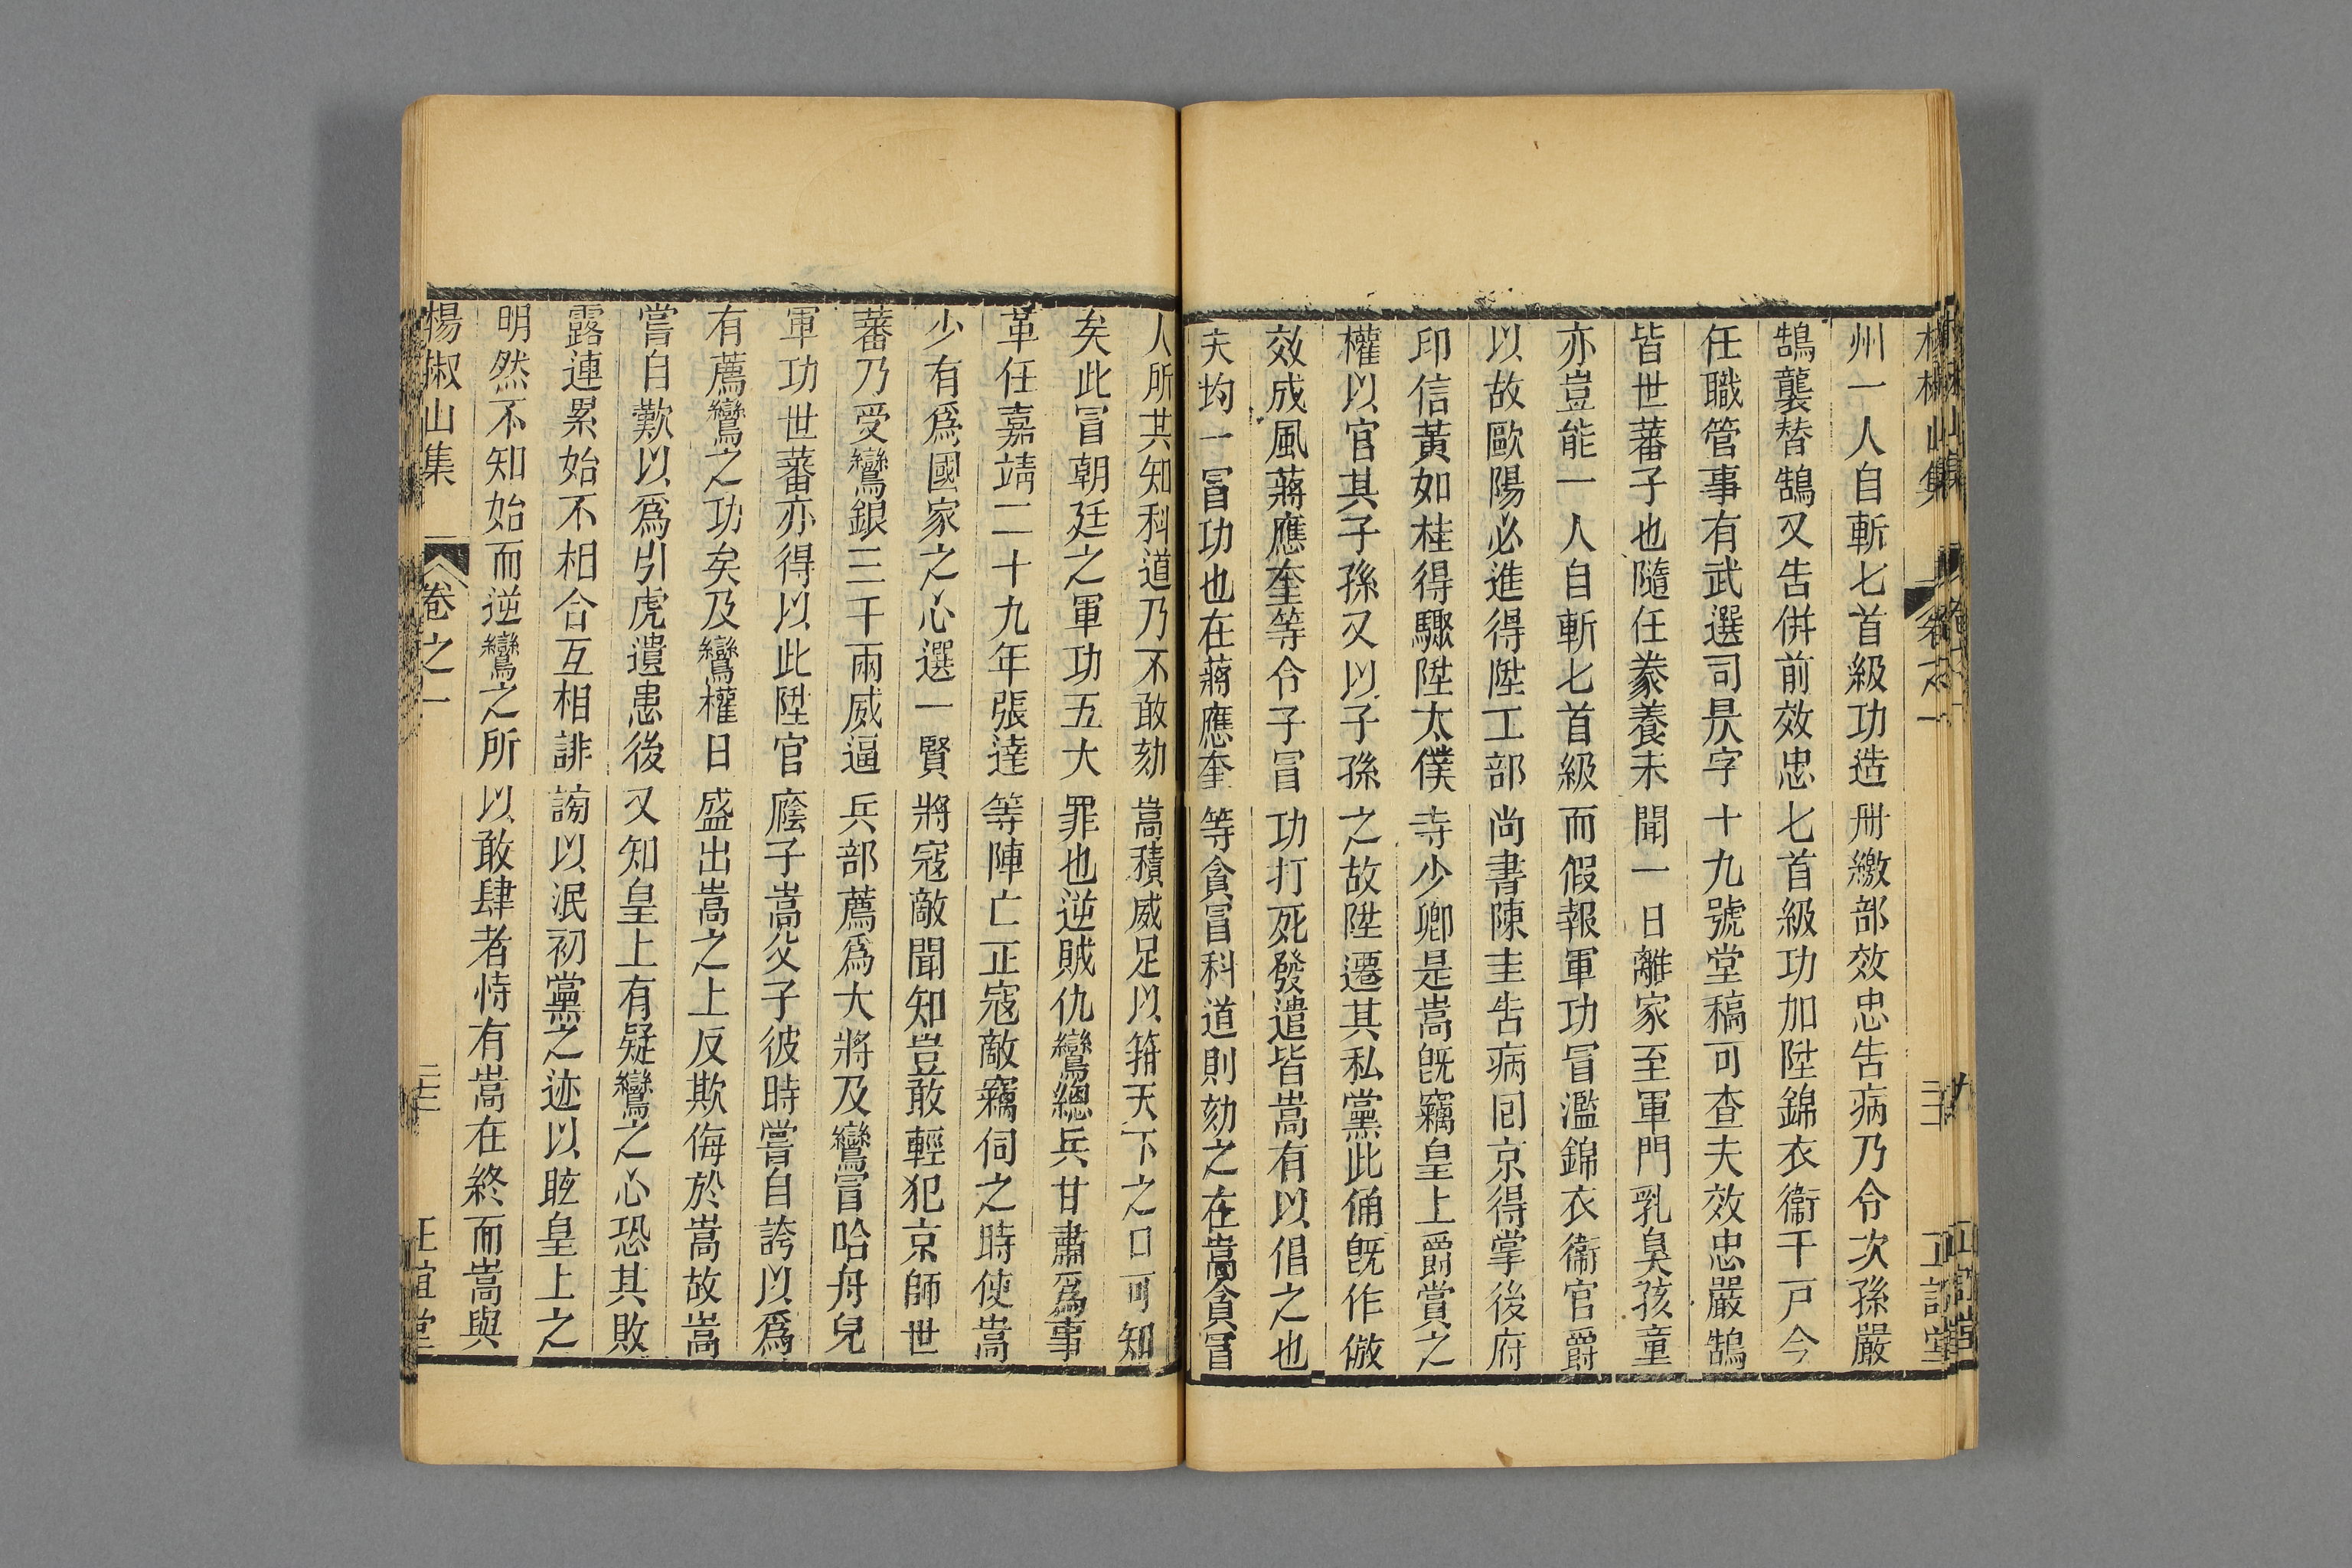 州一人自斬七首級功造册繳部效忠告病乃令次孫嚴
鵠襲替鵠又告併前效忠七首級功加陞錦衣衞千戸今
任職管事有武選司昃字十九號堂稿可查夫效忠嚴鵠
皆世蕃子也隨任豢養未聞一日離家至軍門乳臭孩童
亦豈能一人自斬七首級而假報軍功冒濫錦衣衞官爵
以故歐陽必進得陞工部尚書陳圭告病囘京得掌後府
印信黃如桂得驟陞太僕寺少卿是嵩旣竊皇上爵賞之
權以官其子孫又以子孫之故陞遷其私黨此俑旣作倣
效成風蔣應奎等令子冒功打死發遣皆嵩有以倡之也
夫均一冒功也在蔣應奎等貪冒科道則劾之在嵩貪冒
人所共知科道乃不敢劾嵩積威足以箝天下之口可知
矣此冒朝廷之軍功五大罪也逆賊仇鸞總兵甘肅爲事
革任嘉靖二十九年張達等陣亡正寇敵竊伺之時使嵩
少有爲國家之心選一賢將寇敵聞知豈敢輕犯京師世
蕃乃受鸞銀三千兩威逼兵部薦爲大將及鸞冒哈舟兒
軍功世蕃亦得以此陞官廕子嵩父子彼時嘗自誇以爲
有薦鸞之功矣及鸞權日盛出嵩之上反欺侮於嵩故嵩
嘗自歎以爲引虎遺患後又知皇上有疑鸞之心恐其敗
露連累始不相合互相誹謗以泯初黨之迹以眩皇上之
明然不知始而逆鸞之所以敢肆者恃有嵩在終而嵩與
楊椒山集 卷之一 三三 正誼堂